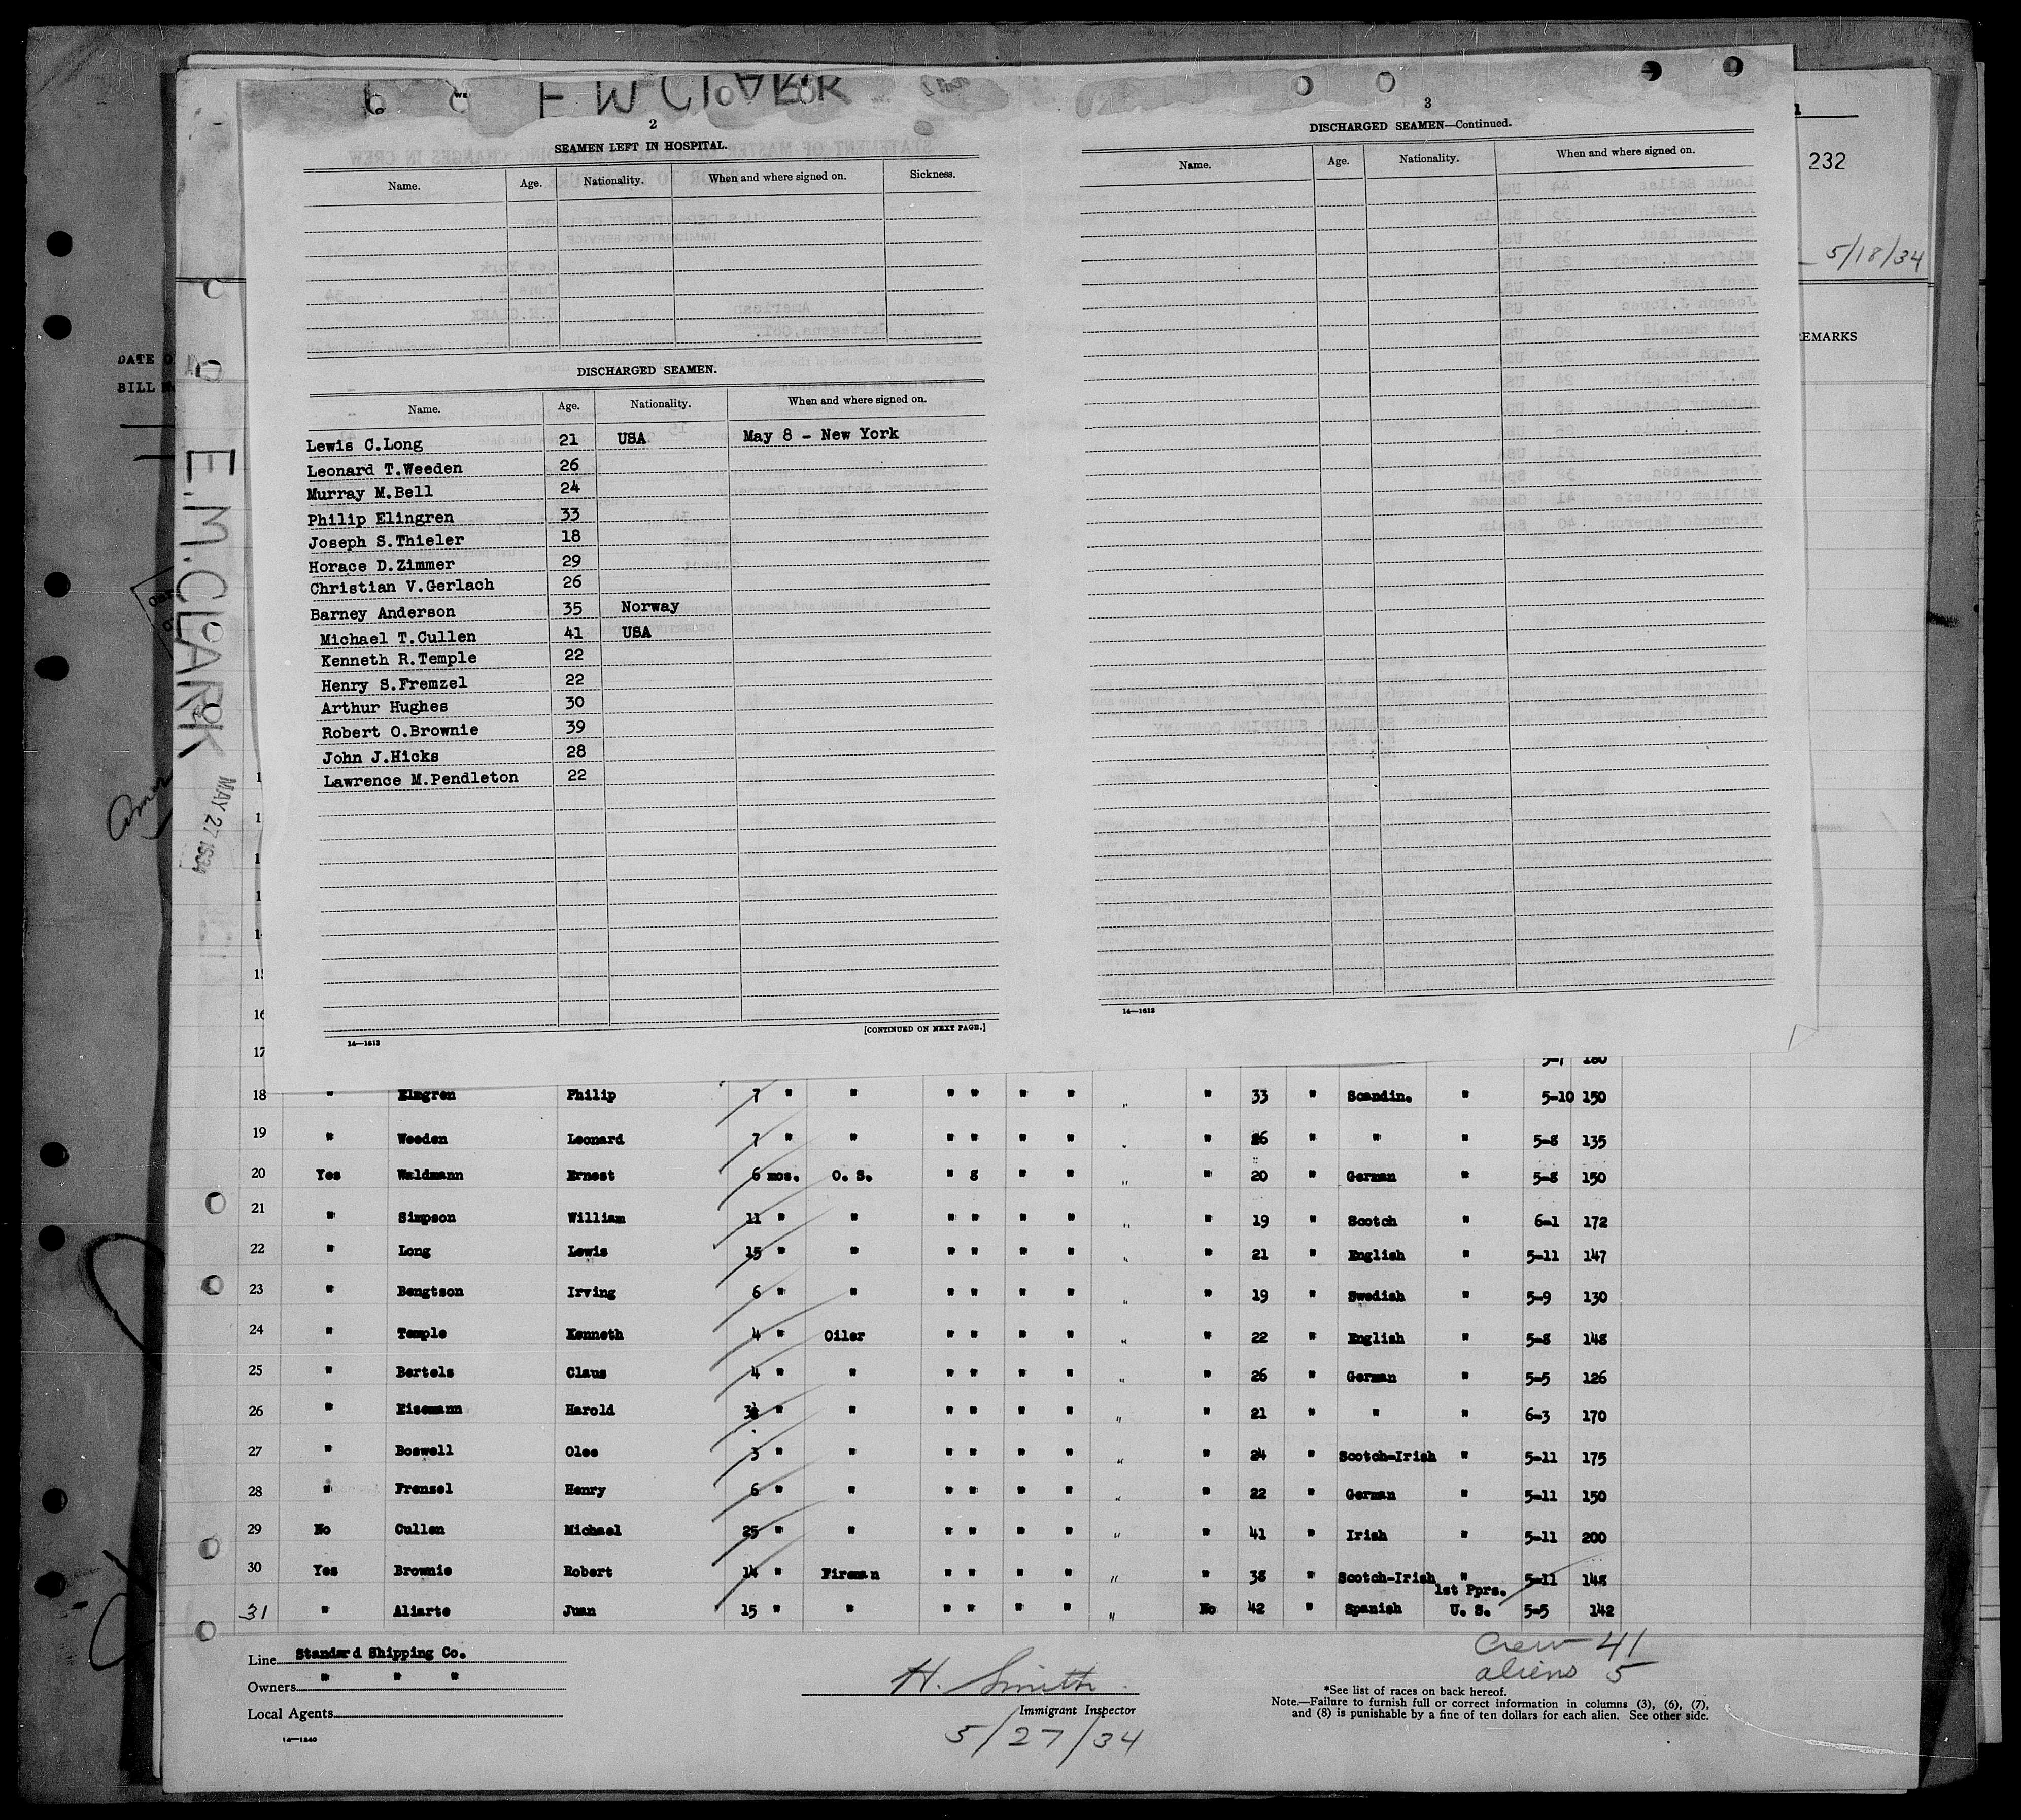 E.M.CLARK
2
SEAMEN LEFT IN HOSPITAL.
Name. Age. Nationality. When and where signed on. Sickness.
DISCHARGED SEAMEN.
Name. Age. Nationality. When and where signed on.
Lewis C.Long 21 USA May 8 - New York
Leonard T.Weeden 26
Murray M.Bell 24
Philip Elingren 33
Joseph S.Thieler 18
Horace D.Zimmer 29
Christian V.Gerlach 26
Barney Anderson 35 Norway
Michael T.Cullen 41 USA
Kenneth R.Temple 22
Henry S.Fremzel 22
Arthur Hughes 30
Robert O.Brownie 39
John J.Hicks 28
Lawrence M.Pendleton 22
14—1613
[CONTINUED ON NEXT PAGE.]
3
DISCHARGED SEAMEN—Continued.
Name. Age. Nationality. When and where signed on.
14—1613
232
5/18/34
REMARKS
DATE
BILL
E.M.CLARK
MAY 27 1934
16
17 5-7 180
18 " Elngren Philip 7 " " " " " " " " 33 " Scandin. " 5-10 150
19 " Weeden Leonard 7 " " " " " " " " 26 " " " 5-8 135
20 Yes Waldmann Ernest 6 mos. O. S. " 8 " " " " 20 " German " 5-8 150
21 " Simpson William 11 " " " " " " " " 19 " Scotch " 6-1 172
22 " Long Lewis 15 " " " " " " " " 21 " English " 5-11 147
23 " Bengtson Irving 6 " " " " " " " " 19 " Swedish " 5-9 130
24 " Temple Kenneth 4 " Oiler " " " " " " 22 " English " 5-8 148
25 " Bertels Claus 4 " " " " " " " " 26 " German " 5-5 126
26 " Eisemann Harold " " " " " " " " 21 " " " 6-3 170
27 " Boswell Olee 3 " " " " " " " " 24 " Scotch-Irish " 5-11 175
28 " Frensel Henry 6 " " " " " " " " 22 " German " 5-11 150
29 No Cullen Michael 25 " " " " " " " " 41 " Irish " 5-11 200
30 Yes Brownie Robert 14 " Fireman " " " " " " 38 " Scotch-Irish " 5-11 148
31 " Aliarte Juan 15 " " " " " " " No 42 " Spanish 1st Pprs. U. S. 5-5 142
Crew 41
aliens 5
Line Standard Shipping Co.
Owners " " "
Local Agents
14—1240
H. Smith
Immigrant Inspector
5/27/34
*See list of races on back hereof.
Note.—Failure to furnish full or correct information in columns (3), (6), (7),
and (8) is punishable by a fine of ten dollars for each alien. See other side.